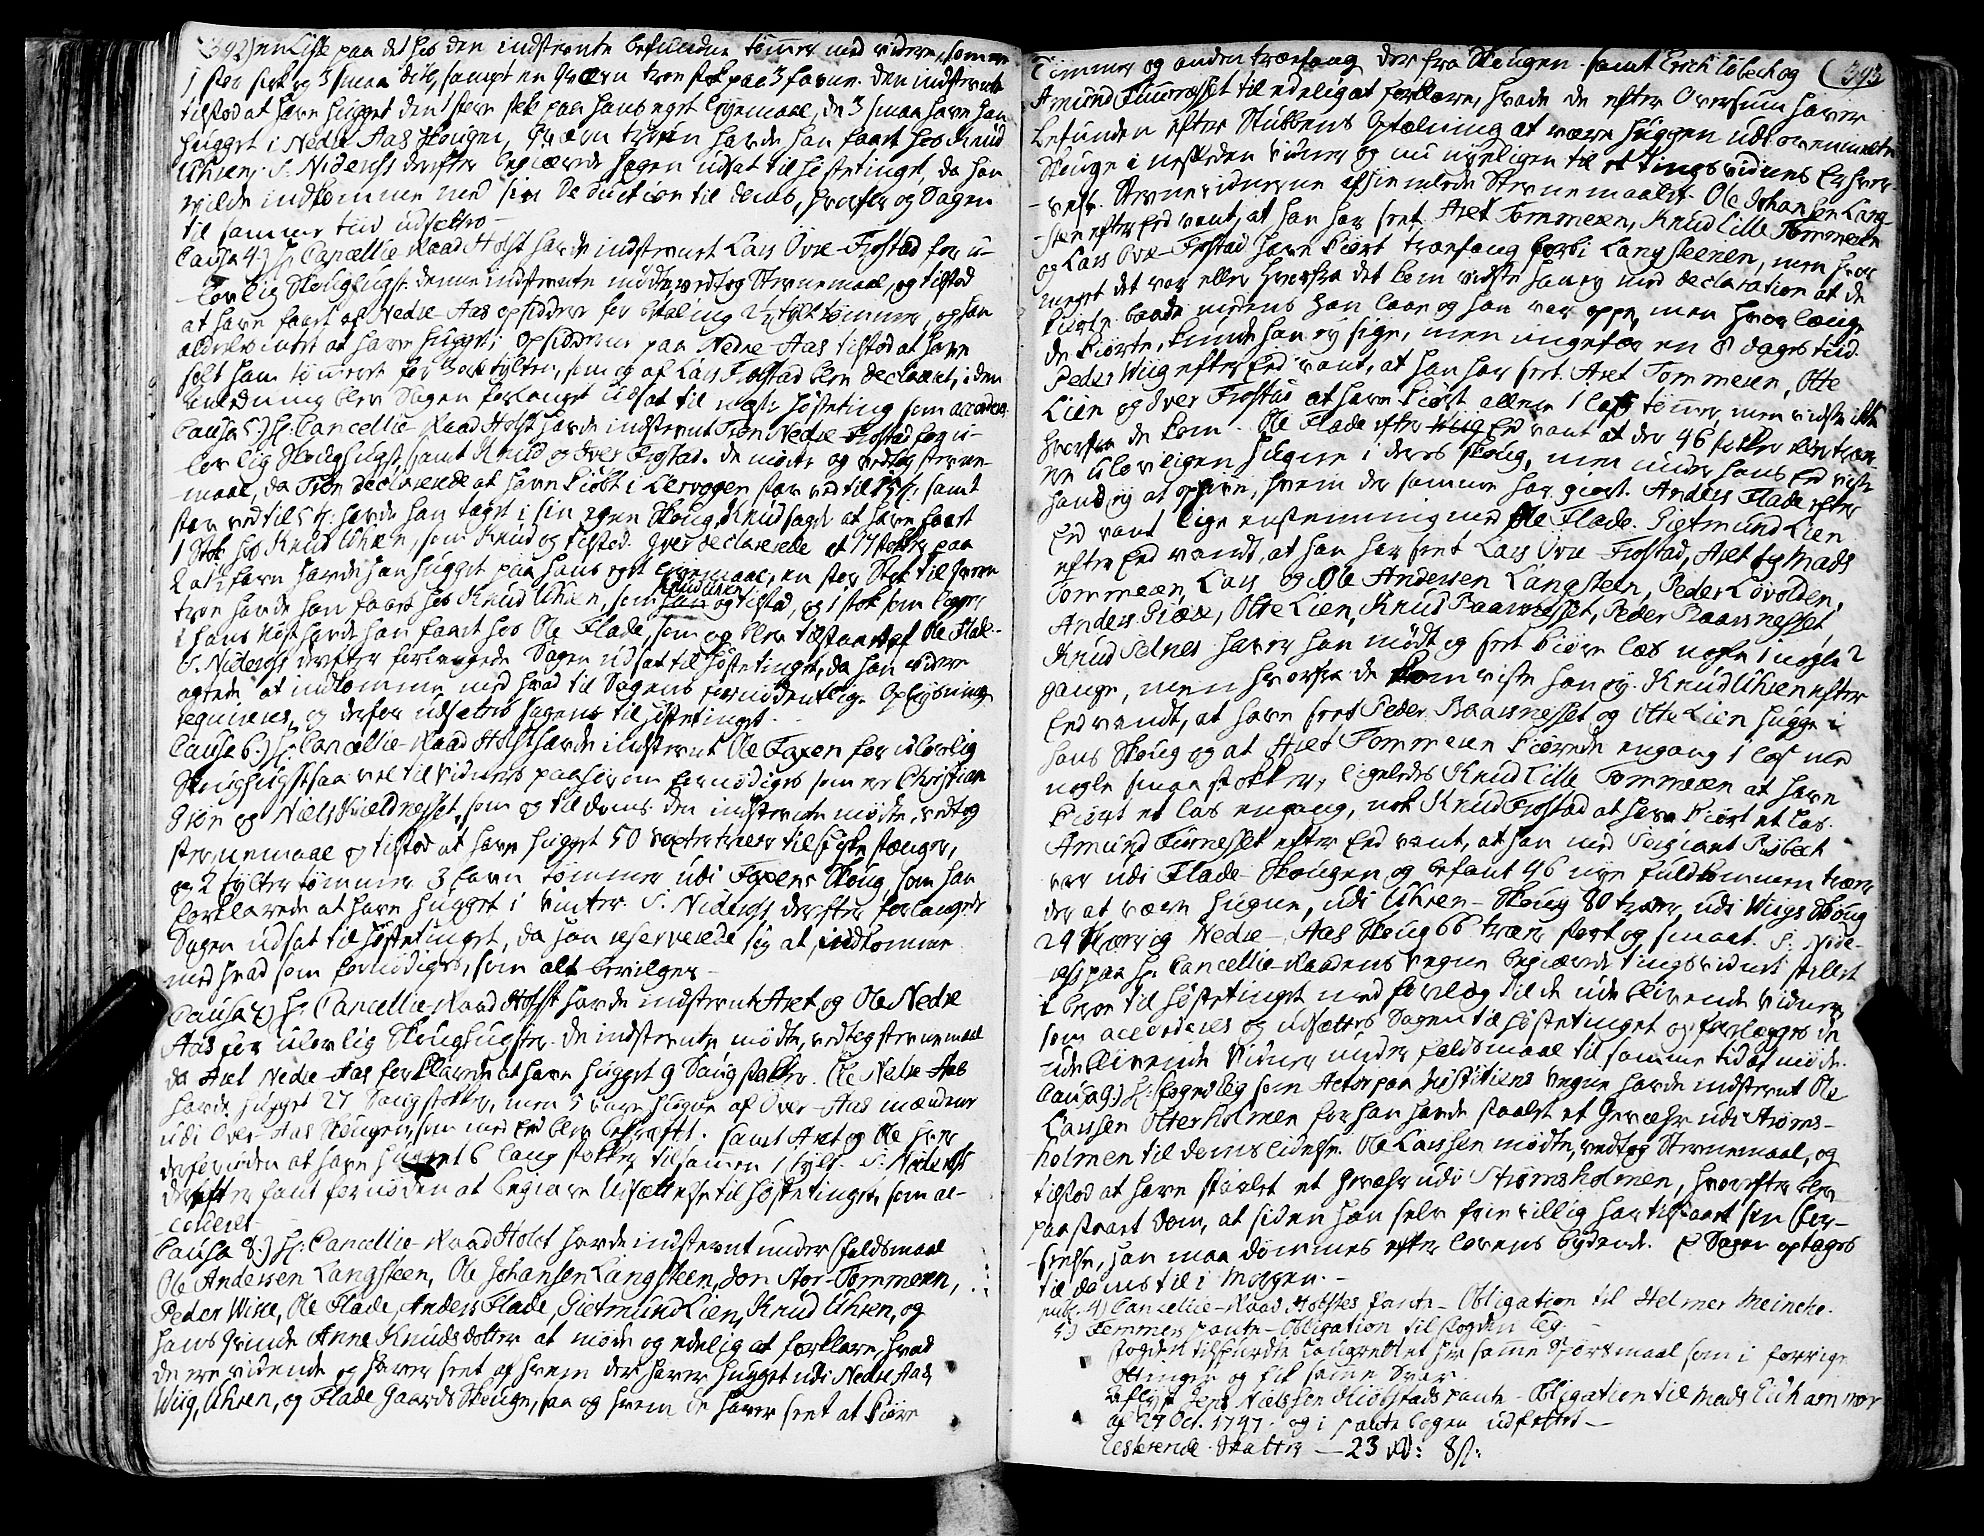 (392) en Liste paa det hos den indstevnte befundne tømmer med videre, som er
1 stor stok og 3 smaa dito, sampt en Qværn træe stok paa 3 favne. den indstevnte
tilstod at have hugget den 1 store stok paa hans eget Leyemaal, de 3 smaa have han
hugget i Nedre Aas Skougen, Qværn træen havde han faaet hos Knud
Uhren. S. Niderøss derefter begiærede Sagen udsat til høstetinget, da han
vilde indkomme med sin Deduction til doms, hvorfor og Sagen
til samme tiid udsættes
Causa 4.) Hr. Cancellie-Raad Holst havde indstevnt Lars Øvre-Frostad for u-
-lovlig Skoughugst. denne indstevnte mødte vedtog Stevnemaal, og tilstod
at have faaet af Nedre-Aas opsiddere for betaling 2½ tylt tømmer, og han
aldeles intet at have hugget; Opsidderne paa Nedre-Aas tilstod at have
solt ham tømmeret for 3 ort tylten, som og af Lars Frostad blev declareret, i den
anledning blev Sagen forlanget udsat til næste høsteting som accorderes
Causa 5.) Hr. Cancellie-Raad Holst havde indstevnt Tron Nedre-Frostad for u-
lovlig Skoughugst, samt Knud og Iver Frostad. de mødte og vedtog stevne-
-maal, da Tron declarerede at have kiøbt i Lervogen stav ved til samt
stav ved til havde han taget i sin egen Skoug, Knud sagde at have faaet
1 Stok hos Knud Uhren, som Knud og tilstod. Iver declarerede at 17 stokker paa
2 a 2½ favn havde han hugget paa hans eget Leyemaal, en stor Stok til Qværn
træe havde han faaet hos Knud Uhren, som Knud Uhren og tilstod, og 1 stok som ligger
i hans Nøst havde han faaet hos Ole Flade, som og blev tilstaaet af Ole Flade.
S. Niderøss derefter forlangede Sagen udsat til høstetinget, da han videre
agtede at indkomme med hvad til Sagens fornødentlige Oplysning
requireres, og derfor udsættes Sagen til høstetinget.
Causa 6.) Hr. Cancellie-Raad Holst havde indstevnt Ole Foxen for ulovlig
Skoughugst saa vel til vidners paahør om fornødiges som er Christian
Grøn og Niels Kieldnesset, som og til doms. den indstevnte mødte, vedtog
stevnemaal og tilstod at have hugget 50 træer til stænger,
og 2 tylter tømmer 3 favn tømmer udi Foxens Skoug, som han
forklarede at have hugget i vinter. S. Niderøss derefter forlangede
Sagen udsat til høstetinget, da han reserverede sig at indkomme
med hvad som fornødiges, som alt bevilges
Causa 7.) Hr. Cancellie-Raad Holst havde indstevnt Aret og Ole Nedre
Aas for ulovlig Skoughugster. de indstevnte mødte, vedtog stevnemaal
da Aret Nedre-Aas forklarede at have hugget 9 Saugstokker. Ole Nedre Aas
havde hugget 27 Saugstokker, men 5 vare hugne af Øvre-Aas mændene
udi Øvre Aas Skougen, som med Eed blev bekræftet. samt Aret og Ole
at have hugget 6 lang stokker tilsammen 1 tylt. S. Niderøss
derefter fant fornøden at begiære Udsættelse til høstetinget, som ac-
-corderet
Causa 8.) Hr. Cancellie-Raad Holst havde indstevnt under faldsmaal
Ole Andersen Langsteen, Ole Johansen Langsteen, Jon Stor-Tommeren,
Peder Wiig, Ole Flade, Anders Flade, Gietmund Lien, Knud Uhren, og
hans Qvinde Anne Knudsdotter at møde og edelig at forklare, hvad
de ere vidende og haver seet af hvem der haver hugget udi Nedre Aas,
Wiig, Uhren, og Flade Gaards Skouge, saa og hvem de haver seet at kiøre
(393
Tømmer og anden træefang der fra Skougen. samt Erich Løbech og
Amund Fiurnesset til edelig at forklare, hvad de efter Oversiun haver
befunden efter Stubbens Optælning at være huggen udi ovenmelte
Skouge i nestleden vinter og nu nyeligen til et tingsvidnes Erhver-
-velse. Stevnevidnerne afhiemlede Stevnemaalet. Ole Johansen Lang-
steen efter Eed vant, at han har seet Aret Tommeren, Knud Lille Tommeren
og Lars Øvre-Frostad have kiørt træefang forbi Langsteenen, men hvor
meget det var eller hvorfra det kom vidste han ey med declaration at de
kiørte baade medens han laae og han var oppe, men hvor længe
de kiørte, kunde han ey sige, men ungefær en 8 dages tiid.
Peder Wiig efter Eed vant, at han har seet Aret Tommeren, Otte
Lien og Iver Frostad at have kiørt allene 1 læs tømmer, men vidste ikke
hvorfra de kom. Ole Flade efter Eed vant at der 46 stokker eller træer
ere ulovligen hugne i deres Skoug, men under hans Eed viste
hand ey at opgive, hvem det samme har giort. Anders Flade efter
Eed vant lige enstemmig med Ole Flade. Gietmund Lien
efter Eed vandt, at han har seet Lars Øvre-Frostad, Aret og Mads
Tommeren, Lars og Ole Andersen Langsteen, Peder Løvolden,
Anders Grøn, Otte Lien, Knud Baarnesset, Peder Baarnesset,
Knud Selnes haver han mødt og seet kiøre læs nogle 1 nogle 2
gange, men hvorfra de kom viste han ey. Knud Uhren efter
Eed vandt, at have seet Peder Baarnesset og Otte Lien hugge i
hans Skoug og at Aret Tommeren kiørede engang 1 læs med
nogle smaa stokker, ligeledes Knud Lille Tommeren at have
kiørt et læs engang, nok Knud Frostad at have kiørt et læs.
Amund Fiurnesset efter Eed vant, at han med Sergiant Løbech
var udi Flade-Skougen og befant 46 nye fuldkommen træer
der at være hugne, udi Uhren-Skoug 80 træer, udi Wiigs Skoug
24 træer og Nedre-Aas Skoug 66 træer stort og smaat. S. Nide-
-røss paa Hr. Cancellie-Raadens vegne begiærede tingsvidnet stillet
i beroe til høstetinget med forelæg til de udeblivende vidner,
som accorderes og udsættes Sagen til høstetinget og forelægges de
udeblivende vidner under faldsmaal til samme tid at møde.
Causa 9.) Hr. Foged Ley som Actor paa Justitiens vegne havde indstevnt Ole
Larssen Otterholmen for han havde staalet et Gevæhr udi Strøms-
holmen til doms lidelse. Ole Larssen mødte, vedtog Stevnemaal, og
tilstod at have stiaalet et Gevæhr udi Strømsholmen, hvorefter blev
paastaaet dom, at siden han selv frievillig har tilstaaet sin For-
-seelse, han maa dømmes efter Lovens bydende. Sagen optages
til doms til i Morgen.
publ. 4) Cancellie-Raad Holstes Pante-Obligation til Helmer Meincke.
5) Femmers pante-Obligation til Fogden Ley.
Fogden tilspurdte Laugrettet de samme Spørsmaal som i forrige
ottinger og fik samme Svar.
aflyst Jens Nielssen pante-Obligation til Mads
af 27 Oct. 1747. og i pante bogen udslettet
Resterende Skatter — 23 rd: 8 s: